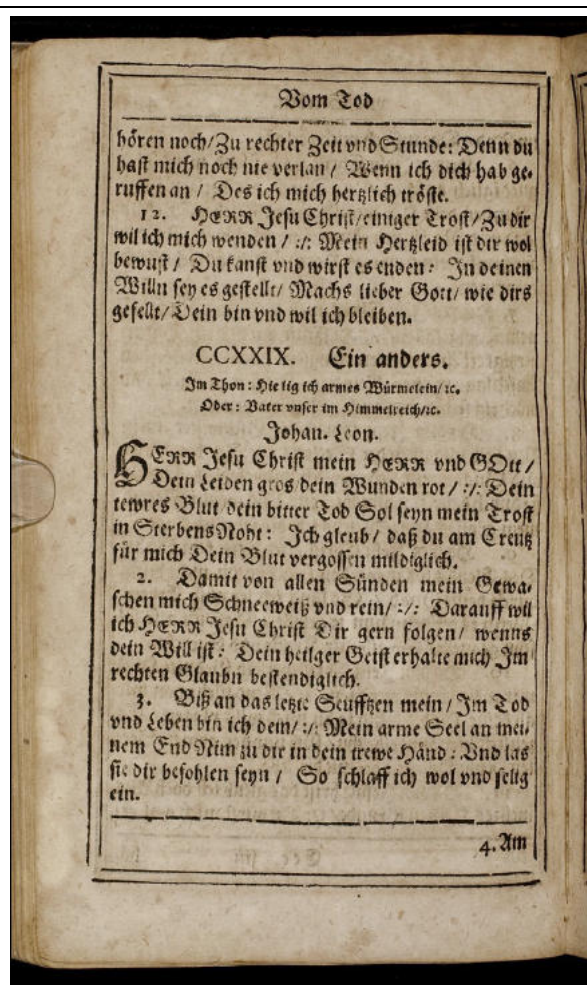 Vom Tod
hören noch/Zu rechter Zeit vnd Stunde: Denn du
hast mich noch nie verlan / Wenn ich dich hab ge-
ruffen an / Des ich mich hertzlich tröste.
12. HERR Jesu Christ/einiger Trost/Zu dir
wil ich mich wenden / :/: Mein Hertzleid ist dir wol
bewust / Du kanst vnd wirst es enden: In deinen
Willn sey es gestellt/ Machs lieber Gott/ wie dirs
gefellt/Dein bin vnd wil ich bleiben.
CCXXIX. Ein anders.
Im Thon: Hie lig ich armes Würmelein/ ꝛc.
Oder: Vater vnser im Himmelreich/ꝛc.
Johan. Leon.
HERR Jesu Christ mein HERR vnd GOtt /
Dein Leiden gros dein Wunden rot / :/: Dein
tewres Blut dein bitter Tod Sol seyn mein Trost
in SterbensNoht: Ich gleub / daß du am Creutz
für mich Dein Blut vergossen mildiglich.
2. Damit von allen Sünden mein Gewa-
schen mich Schneeweiß vnd rein/ :/: Darauff wil
ich HERR Jesu Christ Dir gern folgen/ wenns
dein Will ist: Dein heilger Geist erhalte mich Im
rechten Glaubn bestendiglich.
3. Biß an das letzte Seufftzen mein / Im Tod
vnd Leben bin ich dein/ :/: Mein arme Seel an mei-
nem End Nim zu dir in dein trewe Händ: Vnd las
sie dir befohlen seyn / So schlaff ich wol vnd selig
ein.
4. Am